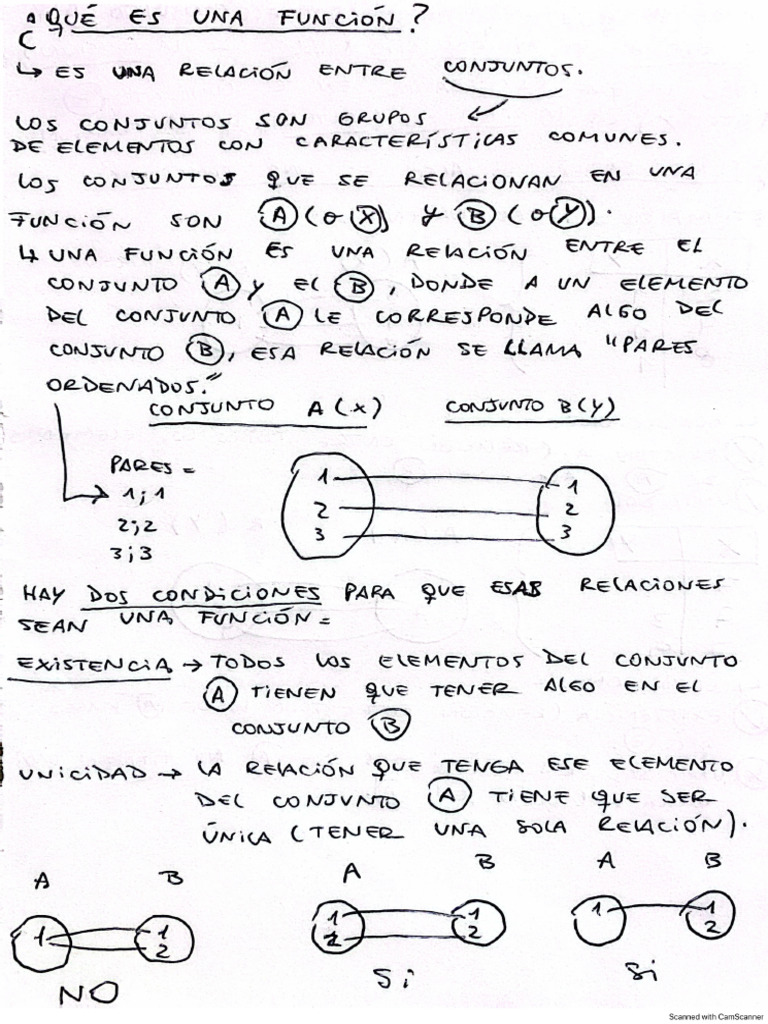 ¿QUÉ ES UNA FUNCIÓN?
↳ ES UNA RELACIÓN ENTRE CONJUNTOS.
LOS CONJUNTOS SON GRUPOS
DE ELEMENTOS CON CARACTERÍSTICAS COMUNES.
LOS CONJUNTOS QUE SE RELACIONAN EN UNA
FUNCIÓN SON A (o X) Y B (o Y).
↳ UNA FUNCIÓN ES UNA RELACIÓN ENTRE EL
CONJUNTO A Y EL B, DONDE A UN ELEMENTO
DEL CONJUNTO A LE CORRESPONDE ALGO DEL
CONJUNTO B, ESA RELACIÓN SE LLAMA "PARES
ORDENADOS."
CONJUNTO A(X) CONJUNTO B(Y)
PARES =
1;1
2;2
3;3
1 1
2 2
3 3
HAY DOS CONDICIONES PARA QUE ESAS RELACIONES
SEAN UNA FUNCIÓN=
EXISTENCIA → TODOS LOS ELEMENTOS DEL CONJUNTO
A TIENEN QUE TENER ALGO EN EL
CONJUNTO B
UNICIDAD → LA RELACIÓN QUE TENGA ESE ELEMENTO
DEL CONJUNTO A TIENE QUE SER
ÚNICA (TENER UNA SOLA RELACIÓN).
A B A B A B
1 1 1 1 1 1
2 2 2 2
NO Si Si
Scanned with CamScanner